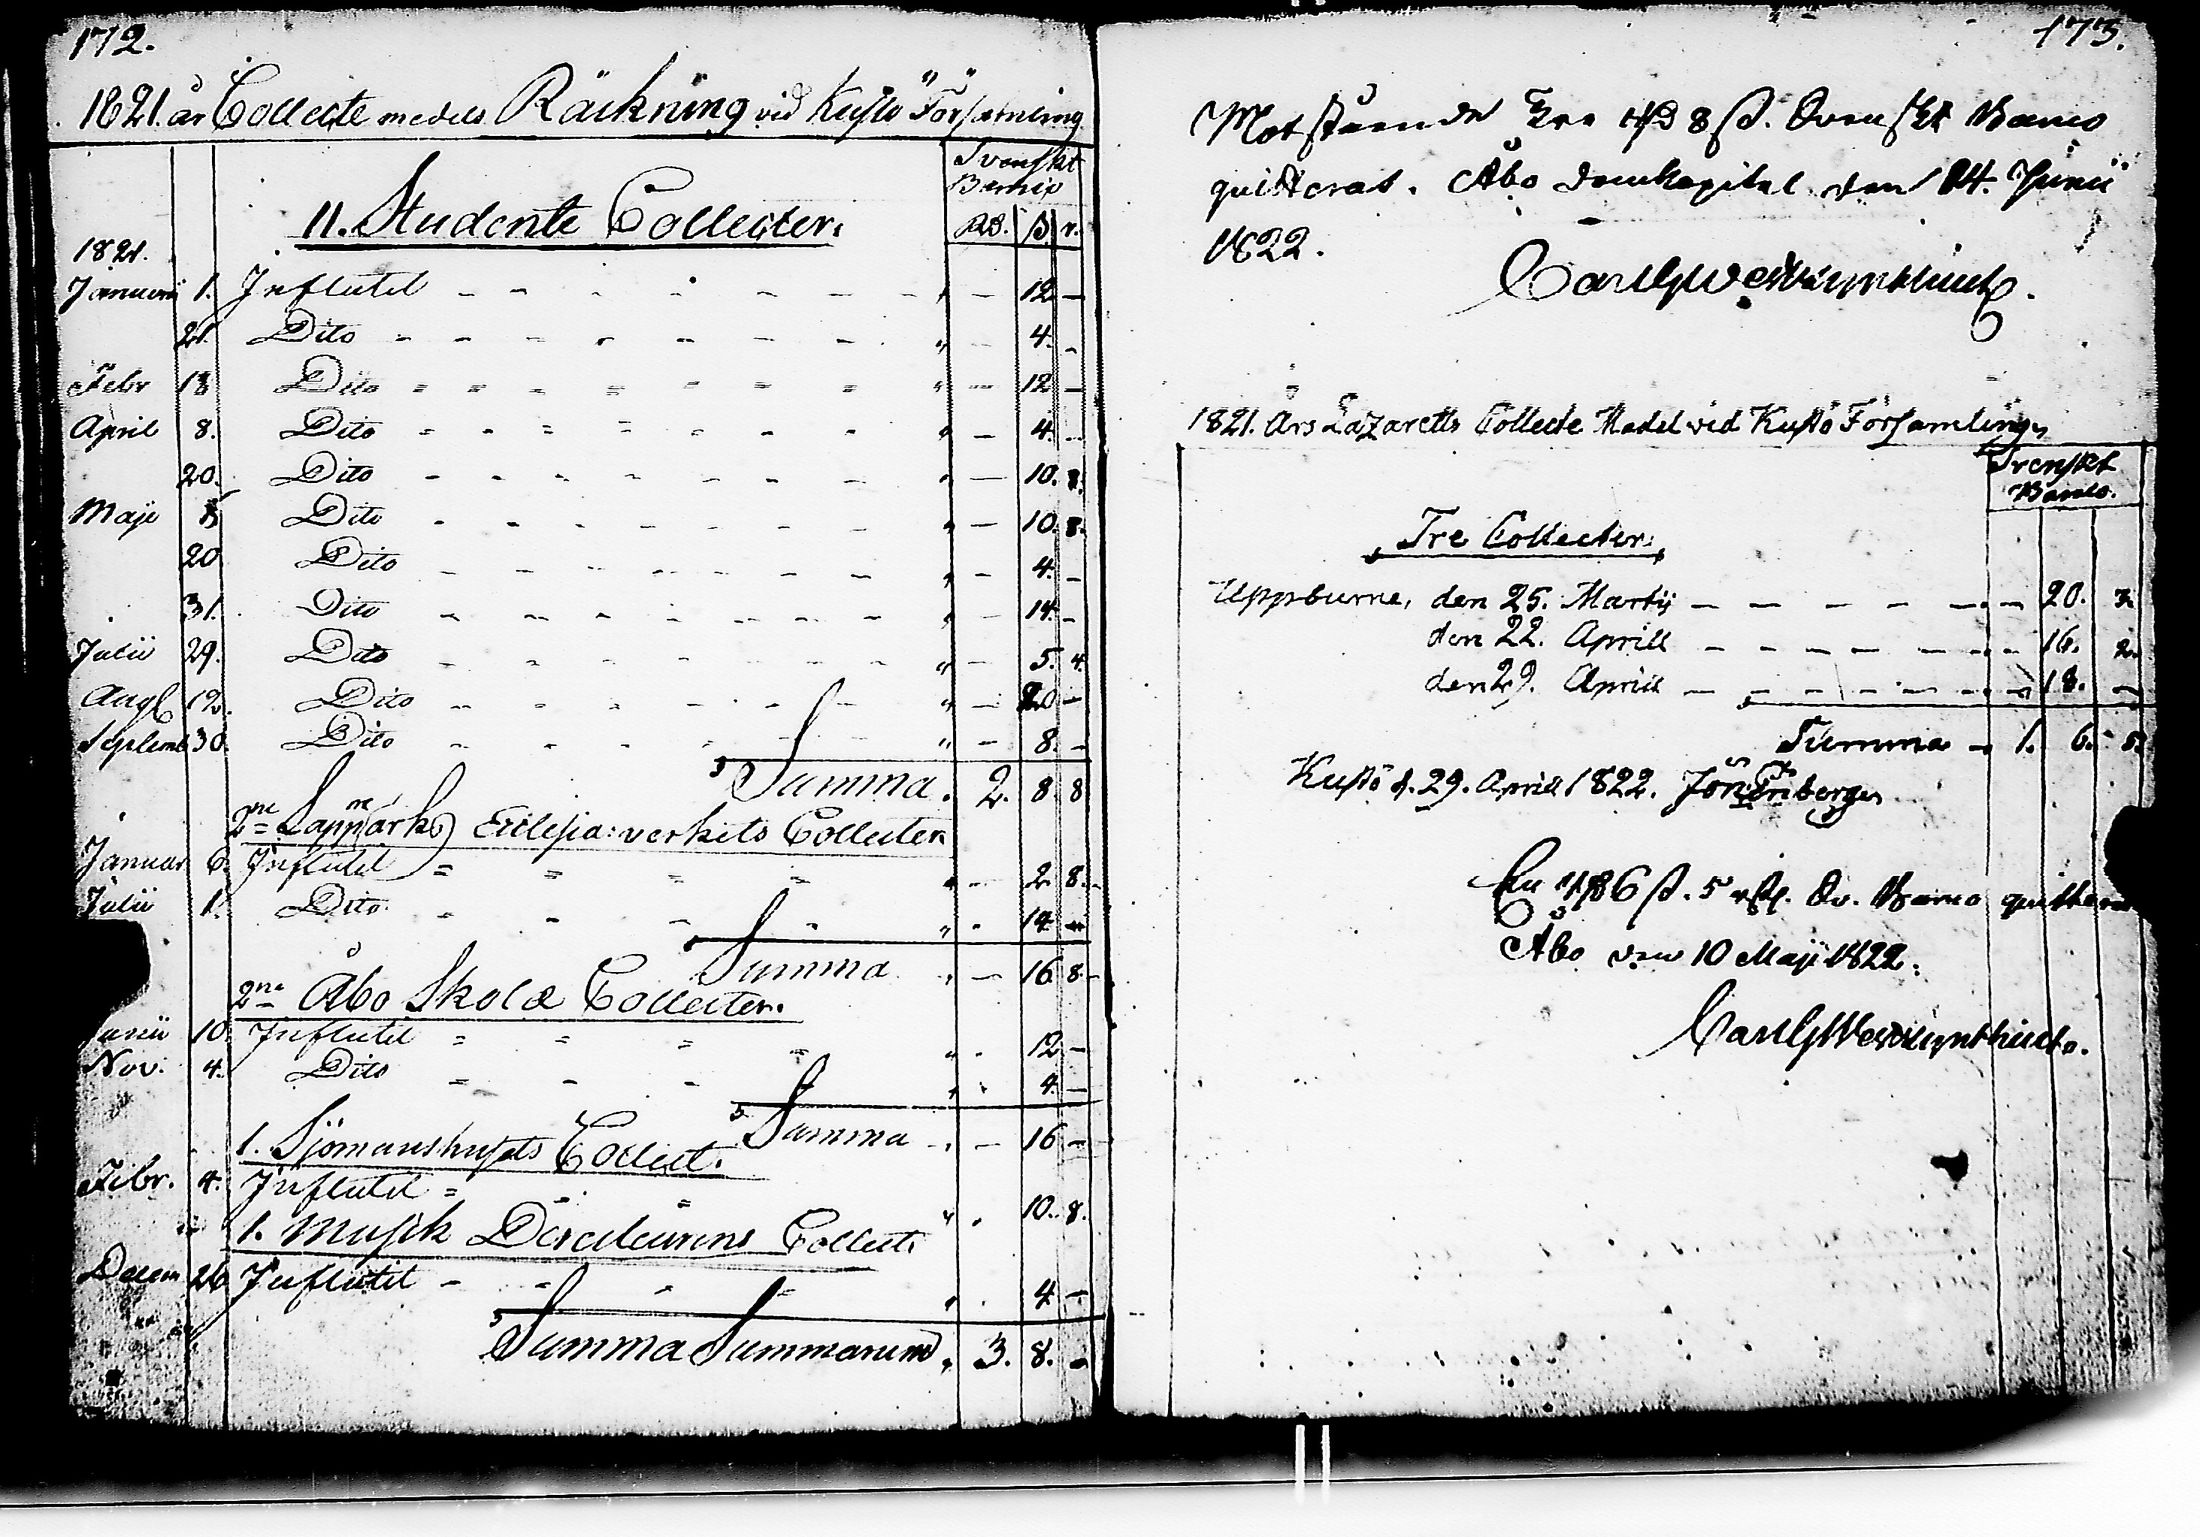 172.
1821. år Collecte medels Räckning vid Kustö Församling
Svenskt
Banco
11. Studente Collecter.
RD. ß. r.
1821.
Januarii 1. Influtit " — 12 —
21. Dito " — 4. —
Febr 18 Dito " — 12 —
April 8. Dito " — 4. —
20. Dito " — 10. 8.
Maji Dito " — 10. 8.
20 Dito " — 4. —
31. Dito — 14. —
Julii 29. Dito " — 5. 4.
Aug 19. Dito " — 20 —
Septemb 30. Dito " — 8. —
Summa . 2. 8 8
2ne Lappmarks Ecclesia-verkets Collecter
Januar 6. Influtit " — 2 8.
Julii 1. Dito " . 14 —
Summa " — 16 8.
2ne Åbo Skole Collecter.
Junii 10. Influtit " . 12 —
Nov. 4. Dito " . 4. —
Summa . — 16 —
1. Sjömanshusets Collect.
Febr. 4. Influtit " . 10. 8.
1. Musik Directeurens Collect.
Decem 26 Influtit " . 4 —
Summa Summarum . 3. 8. —
173.
Motstående Tre RD 8 ß. Svenskt Banco
quitterat. Åbo Domkapitel den 24. Junii
1822.
1821. Års Lazaretts Collecte Medel vid Kustö Församling
Svenskt
Banco.
Tre Collecter.
Uppburne, den 25. Martij — 20. 3.
den 22. Aprill — 16. 2.
den 29. Aprill — 18. —
Summa — 1. 6. 5.
Kustö d. 29. Aprill 1822. Jon: Enberg
En RD 6 ß. 5 rst. Sv. Banco quitterat
Åbo den 10 Maji 1822.